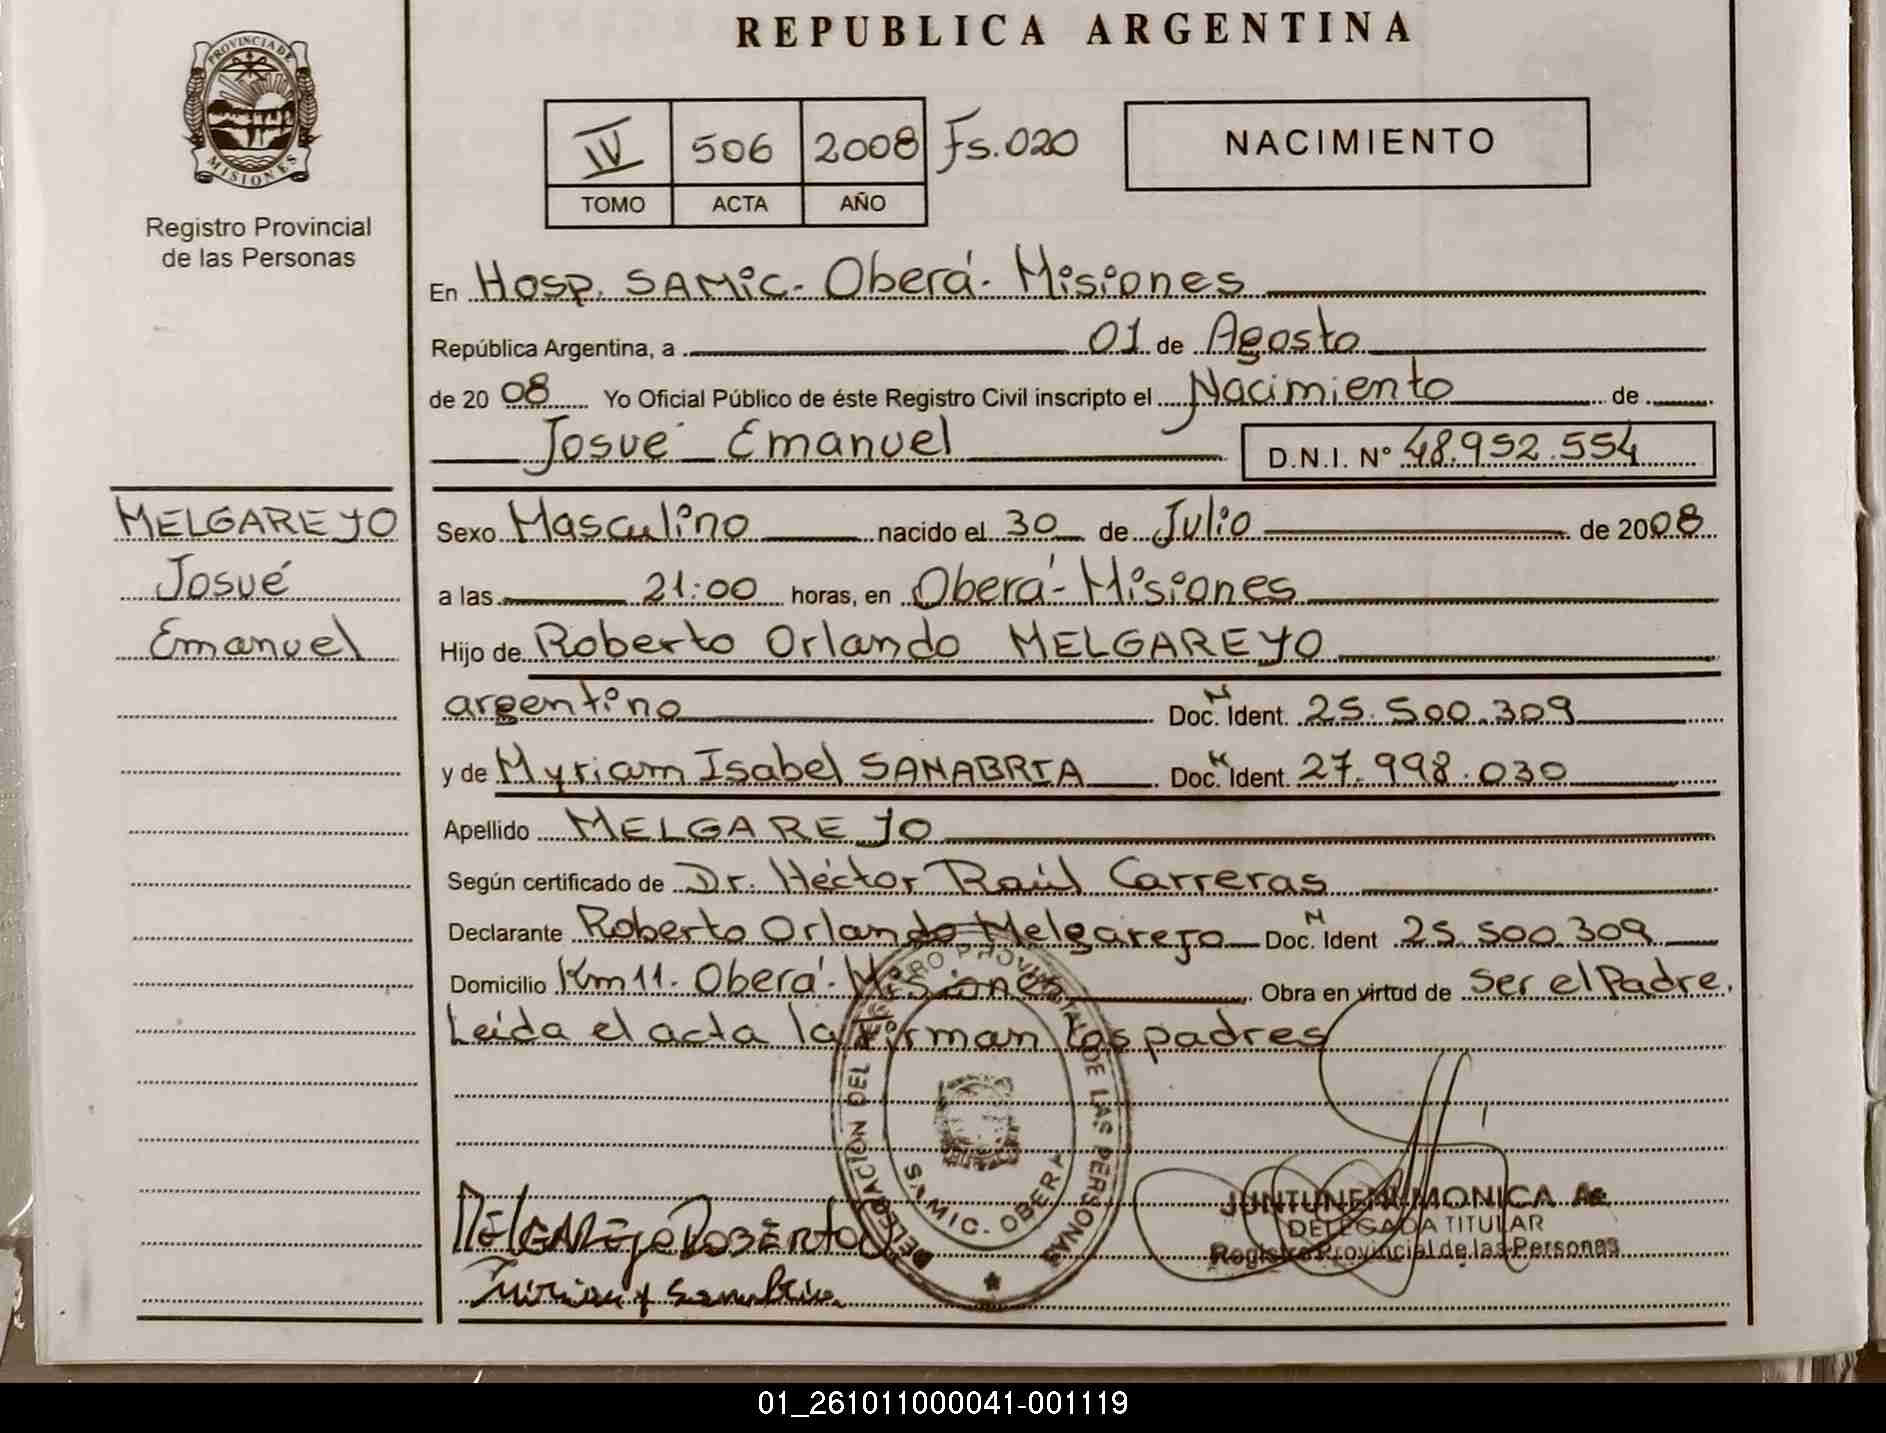 REPUBLICA ARGENTINA
PROVINCIA DE
MISIONES
Registro Provincial
de las Personas
IV 506 2008 Fs.020
TOMO ACTA AÑO
NACIMIENTO
En Hosp. SAMIC. Oberá. Misiones
República Argentina, a 01 de Agosto
de 2008 Yo Oficial Público de éste Registro Civil inscripto el Nacimiento de
Josué Emanuel D.N.I. N° 48.952.554
MELGAREJO
Josué
Emanuel
Sexo Masculino nacido el 30 de Julio de 2008
a las 21:00 horas, en Oberá-Misiones
Hijo de Roberto Orlando MELGAREJO
argentino Doc. N Ident. 25.500.309
y de Myriam Isabel SANABRIA Doc. N Ident. 27.998.030
Apellido MELGAREJO
Según certificado de Dr. Héctor Raúl Carreras
Declarante Roberto Orlando Melgarejo Doc. N Ident 25.500.309
Domicilio Km 11. Oberá. Misiones Obra en virtud de Ser el Padre.
Leída el acta la firman los padres
DELEGACION DEL REGISTRO PROVINCIAL DE LAS PERSONAS
S.A.MIC. OBERA
MELGAREJO ROBERTO
JUNTUNEN MONICA
DELEGADA TITULAR
Registro Provincial de las Personas
01_261011000041-001119